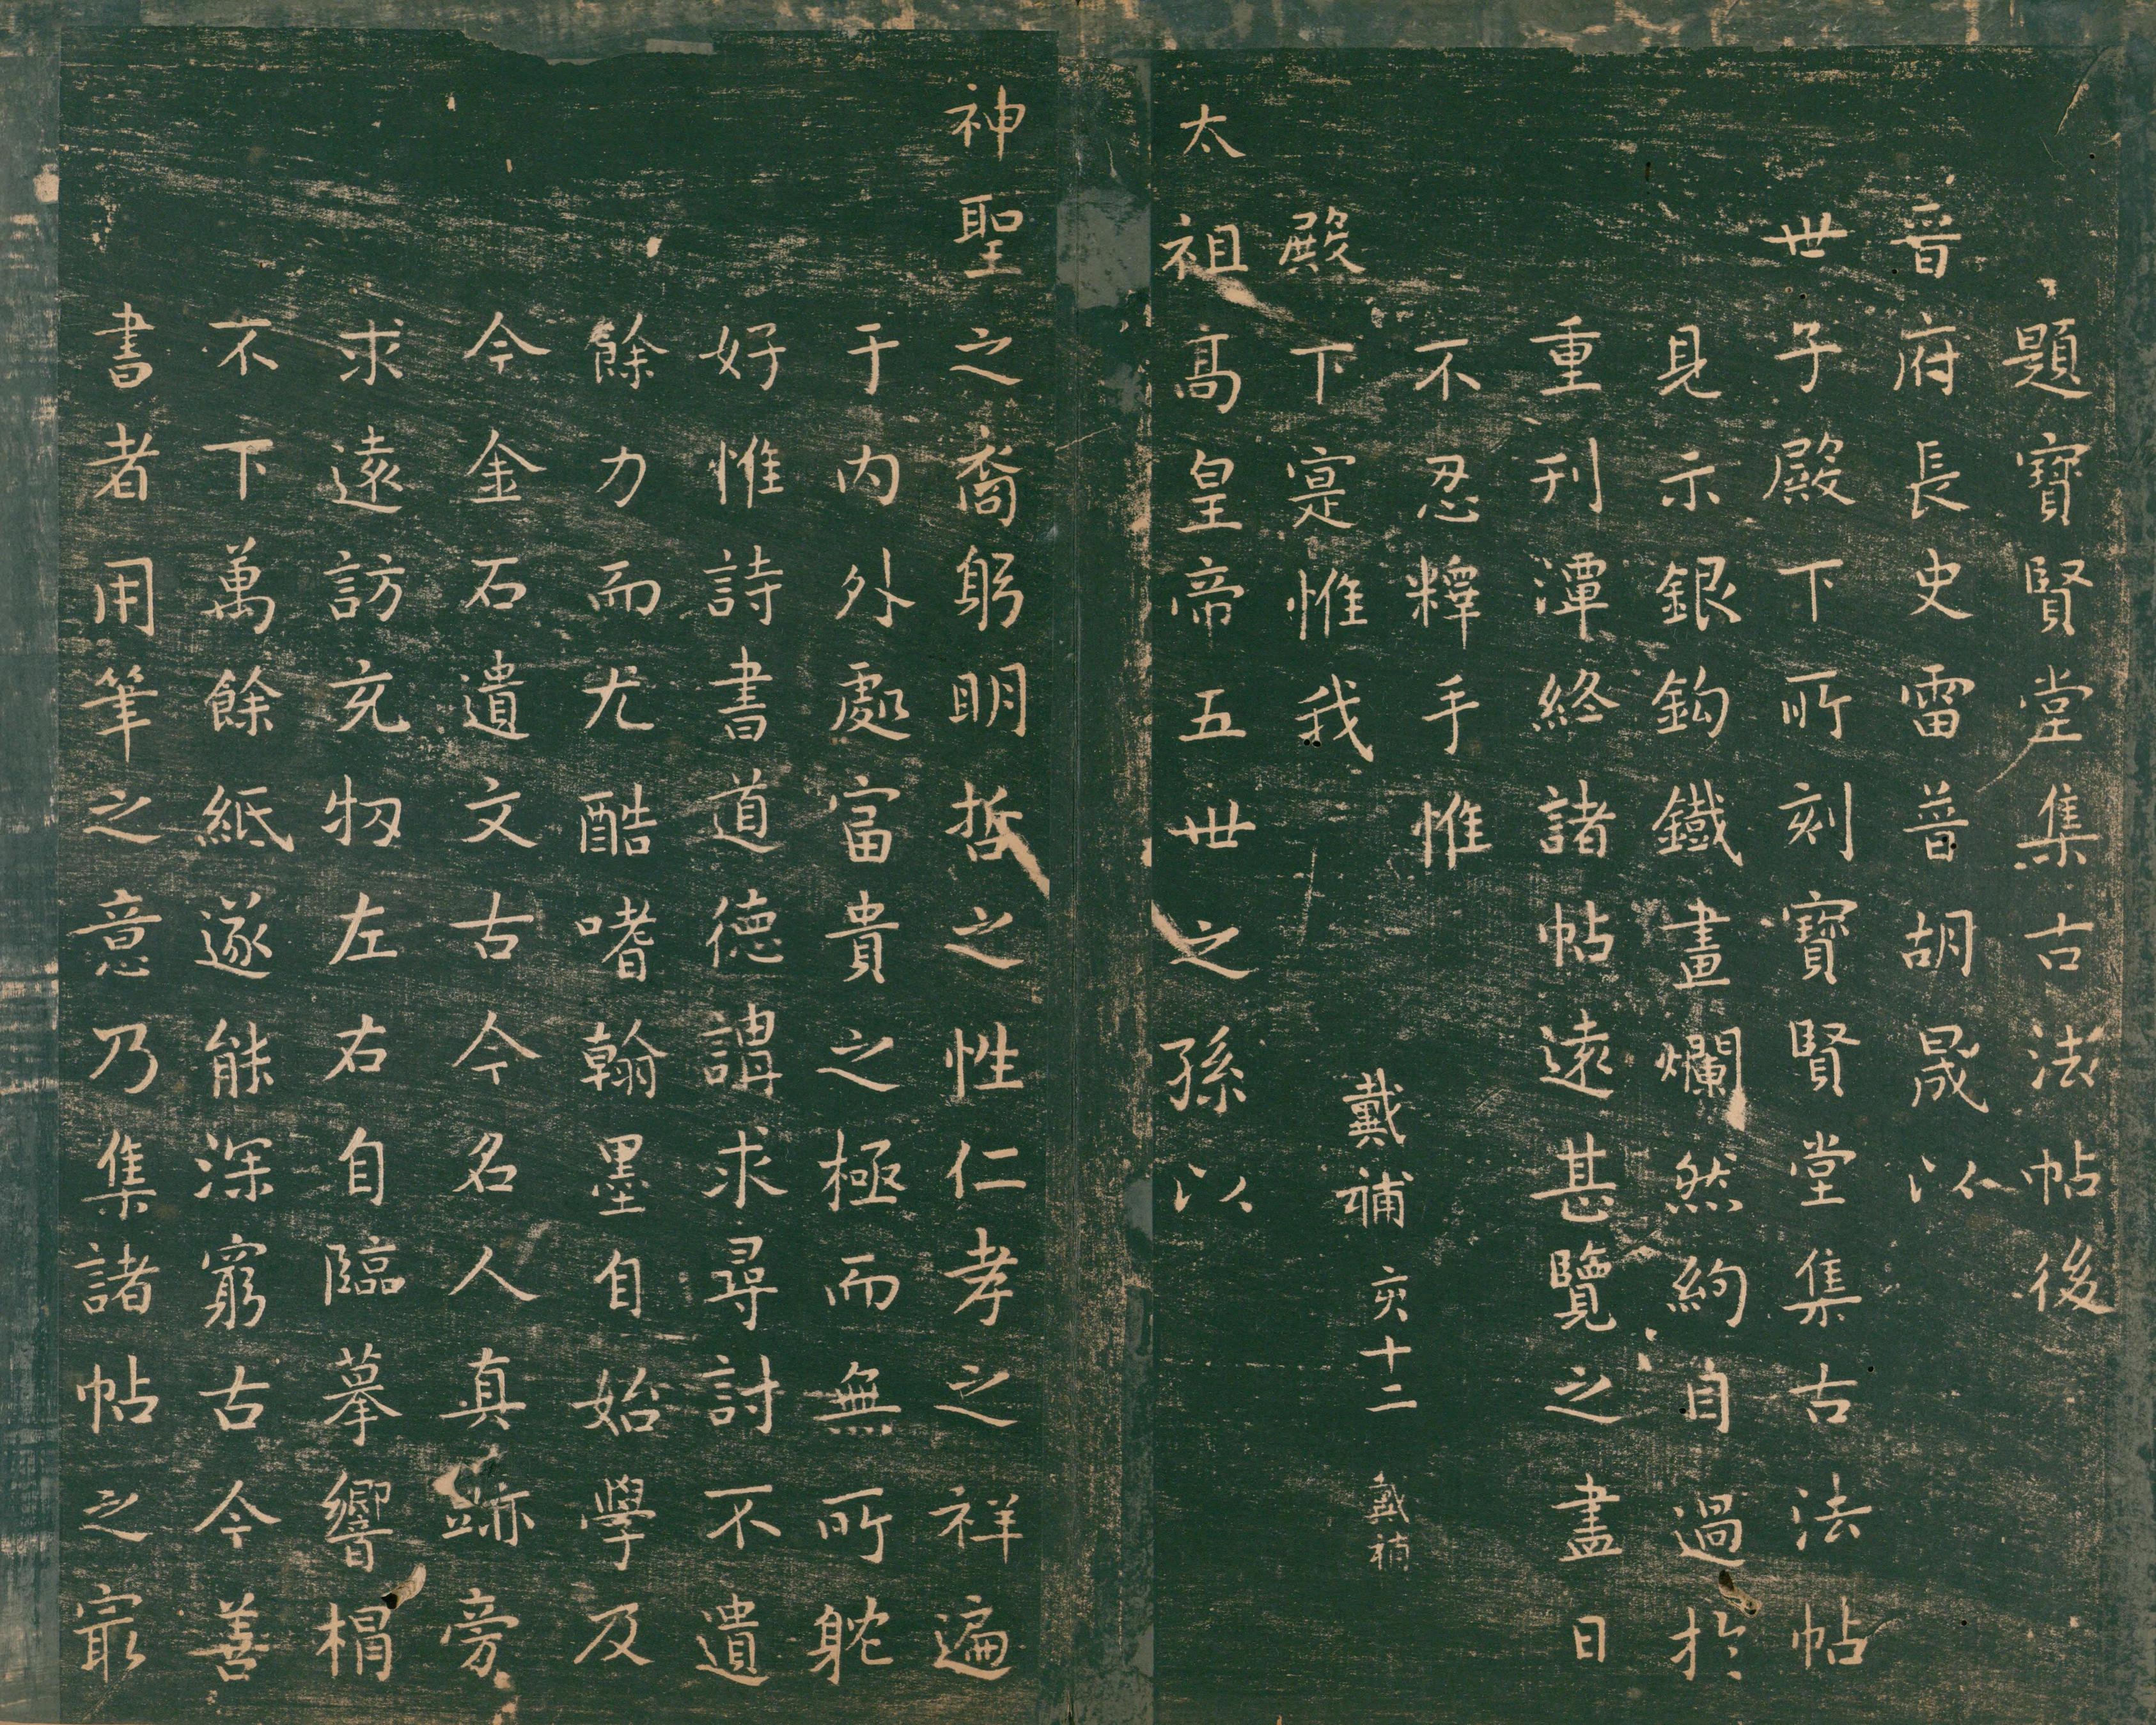 題寶賢堂集古法帖後
晉府長史雷普胡晟以
世子殿下所刻寶賢堂集古法帖
見示銀鉤鐵畫爛然絢自過於
重刊潭絳諸帖遠甚覽之盡日
不忍釋手惟
殿下寔惟我
戴補 亥十二 戴補
太祖高皇帝五世之孫以
神聖之裔躬明哲之性仁孝之祥遍
于内外處富貴之極而無所躭
好惟詩書道德講求尋討不遺
餘力而尤酷嗜翰墨自始學及
今金石遺文古今名人真跡旁
求遠訪充牣左右自臨摹響榻
不下萬餘紙遂能深窮古今善
書者用筆之意乃集諸帖之寂